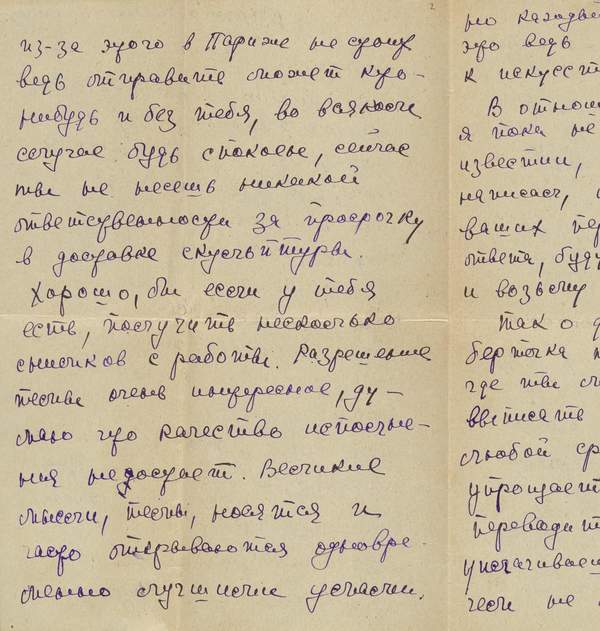 2
из-за этого в Париже не сразу
ведь отправить может кто-
нибудь и без тебя, во всяком
случае будь спокоен, сейчас
ты не несешь никакой
ответственности за просрочку
в доставке скульптуры.
Хорошо, бы если у тебя
есть, получить несколько
снимков с работы. Разрешение
темы очень интересное, ду-
маю что качество исполне-
ния не достает. Великие
мысли, темы, носятся и
часто открываются одновре-
менно лучшими умами.
но каждый
это ведь
к искусств
В отнош
я пока не
известии,
написал,
ваших пе
ответа, буду
и возьму
Так о
берточка
где ты
выписать
любой ср
упрощает
переводит
укачивает
чем не